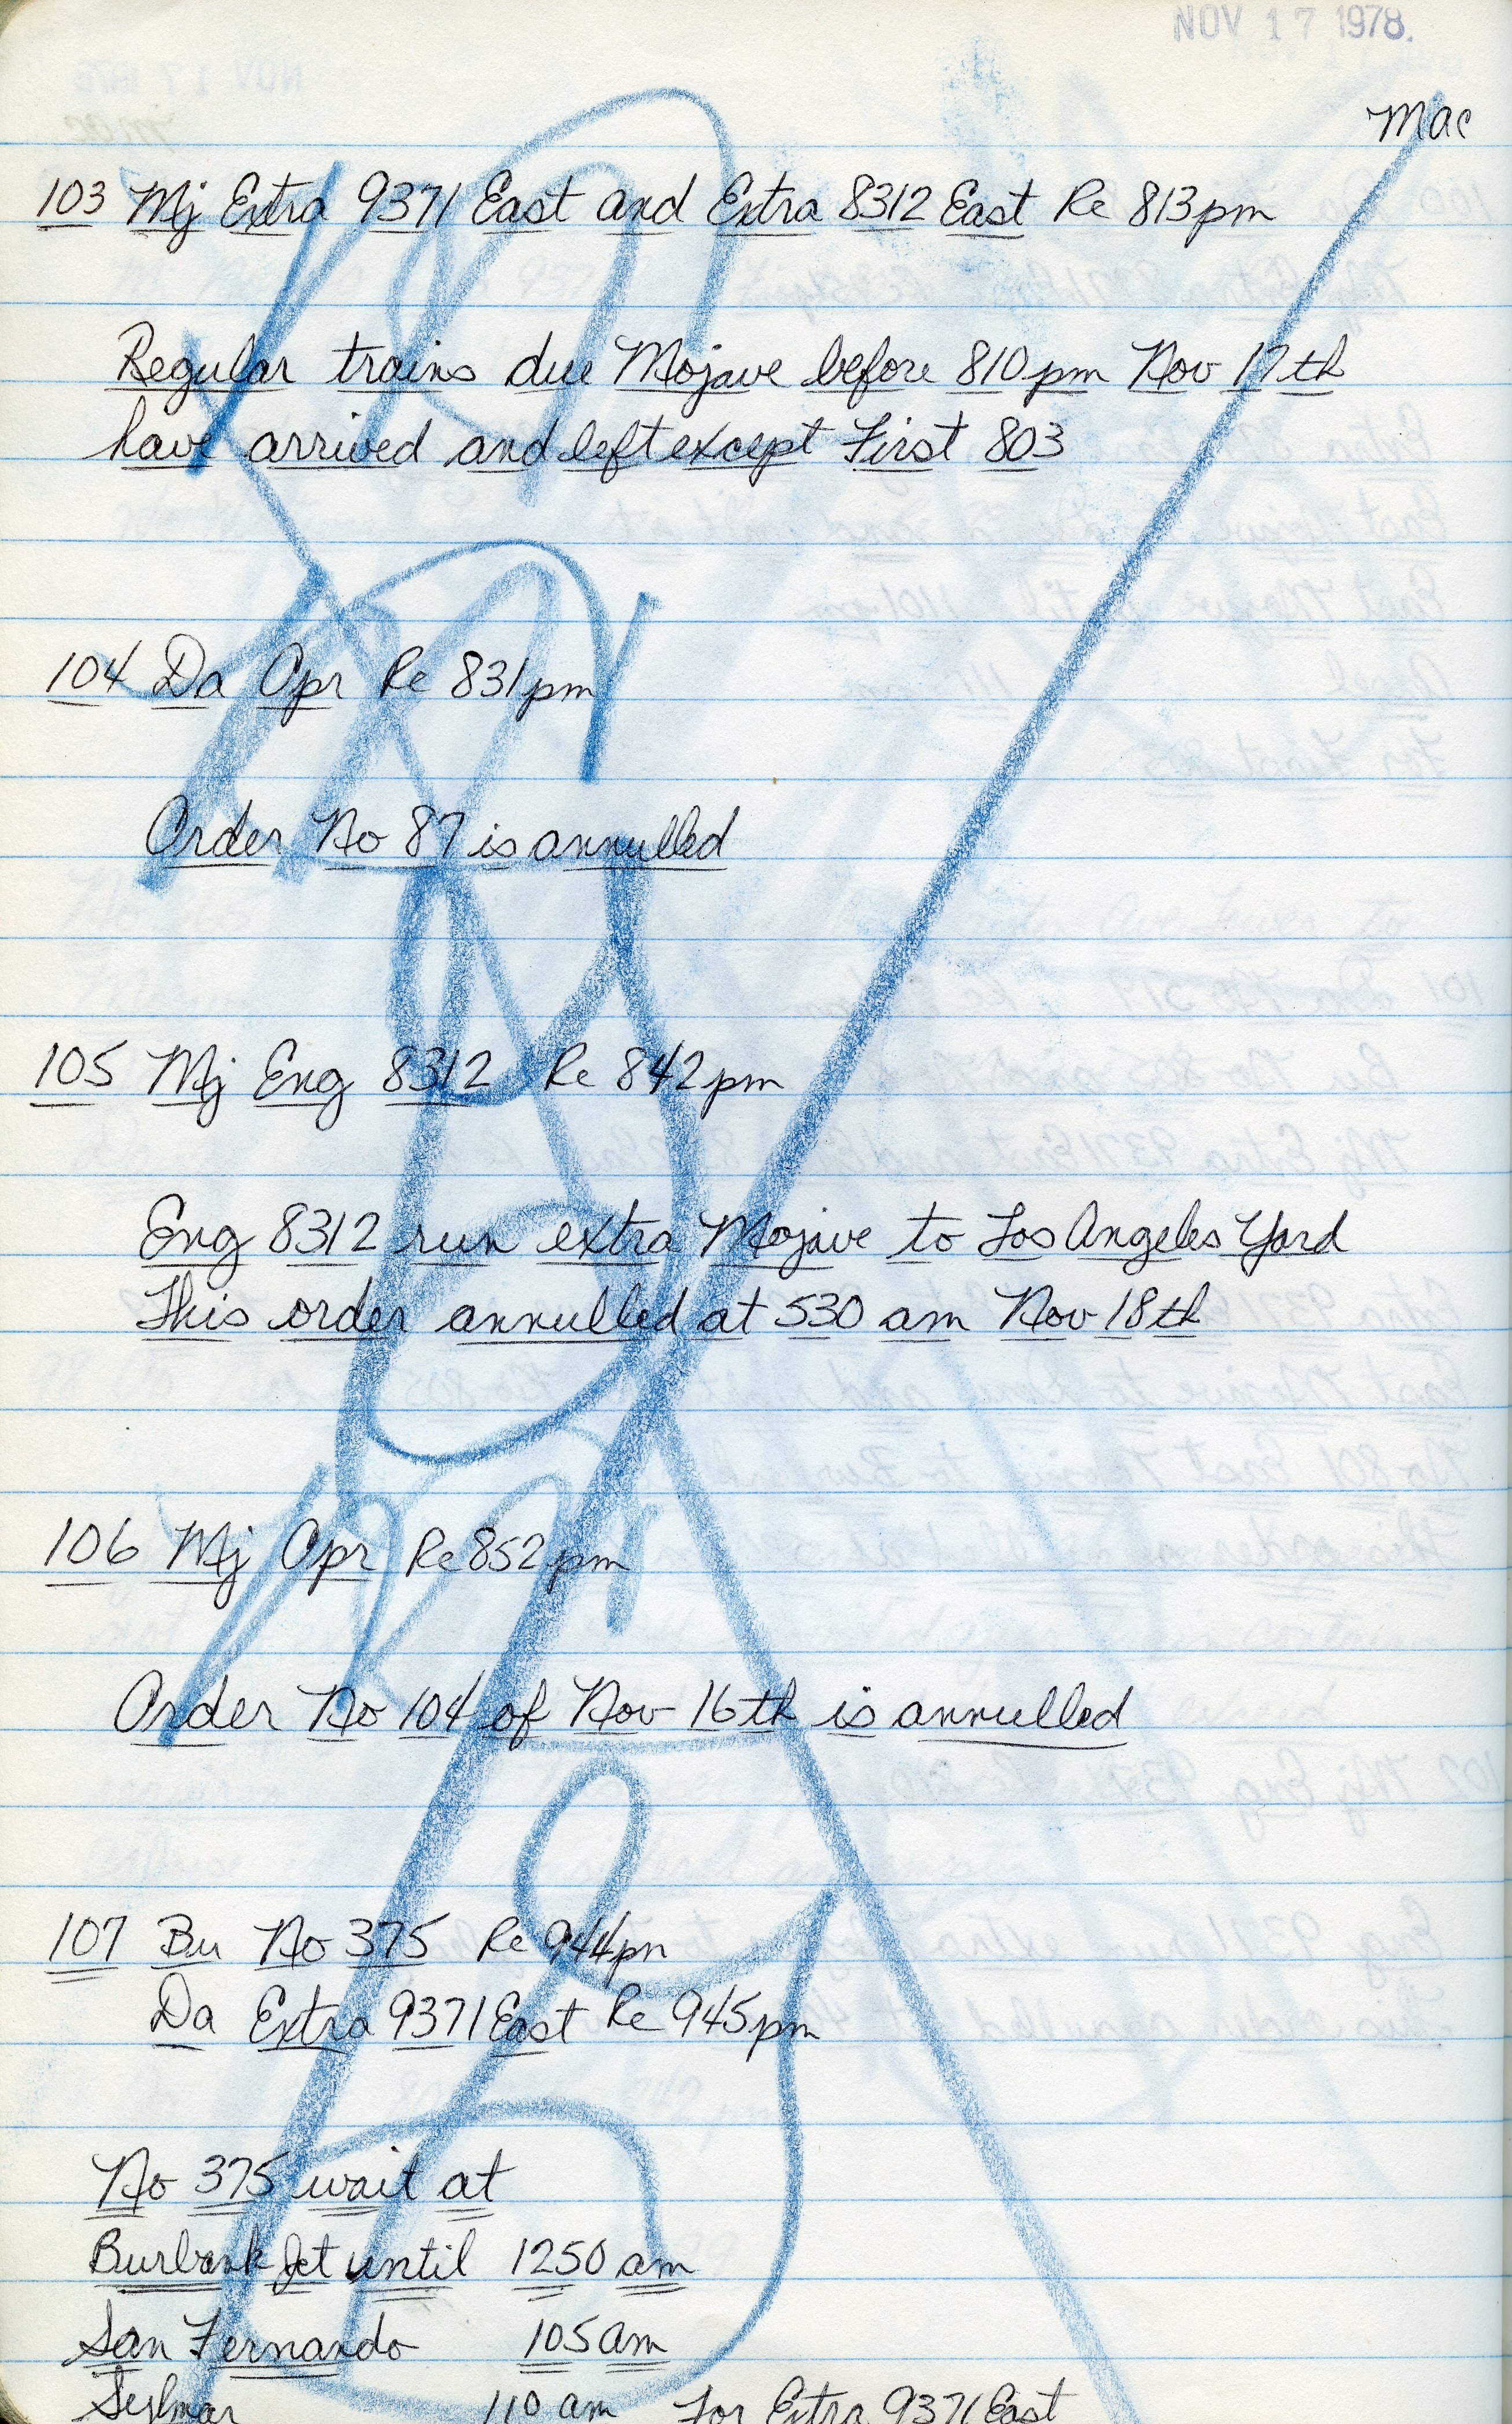 NOV 17 1978.
Mac
103 Mj Extra 9371 East and Extra 8312 East Re 813pm
Regular trains due Mojave before 810pm Nov 17th
have arrived and left except First 803
104 Da Opr Re 831pm
Order No 87 is annulled
105 Mj Eng 8312 Re 842pm
Eng 8312 run extra Mojave to Los Angeles Yard
This order annulled at 530 am Nov 18th
106 Mj Opr Re 852pm
Order No 104 of Nov 16th is annulled
107 Bu No 375 Re 944pm
Da Extra 9371 East Re 945pm
No 375 wait at
Burbank Jct until 1250 am
San Fernando 105 am
Sylmar 110 am For Extra 9371 East